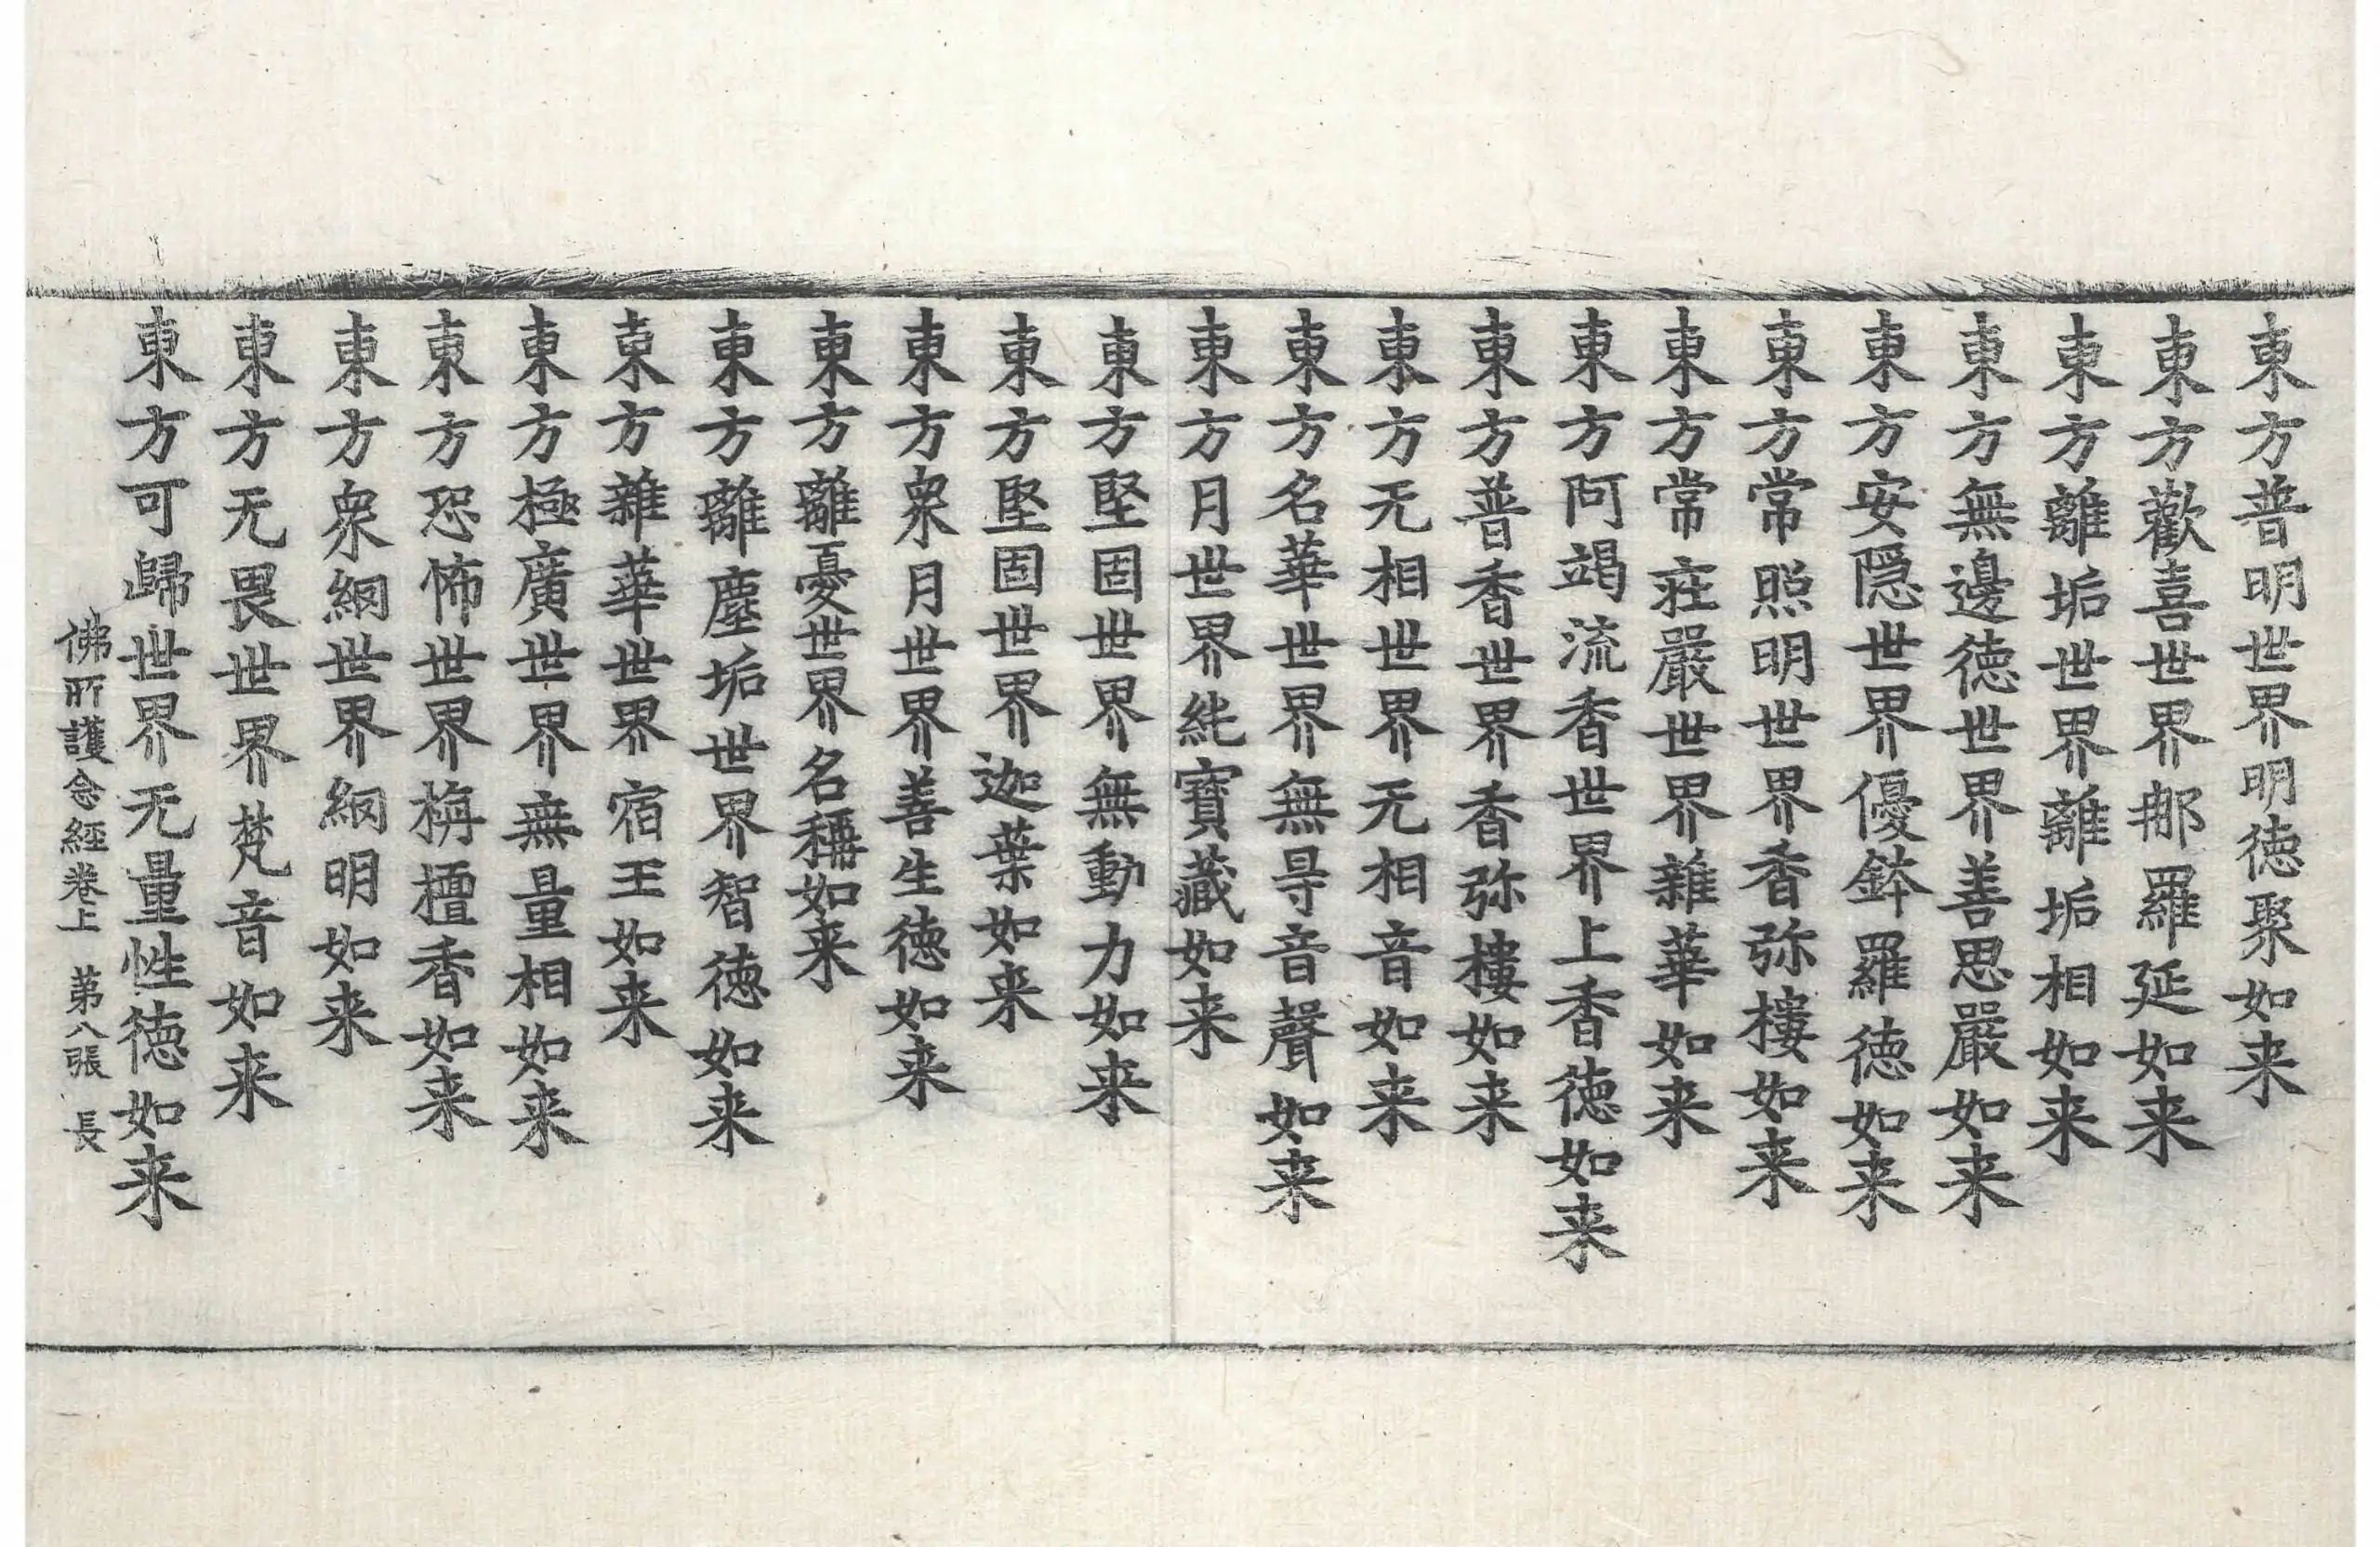 東方普明世界明徳聚如来
東方歡喜世界那羅延如来
東方離垢世界離垢相如来
東方無邊徳世界善思嚴如来
東方安隠世界優鉢羅徳如来
東方常照明世界香弥樓如来
東方常莊嚴世界雜華如来
東方阿竭流香世界上香徳如来
東方普香世界香弥樓如来
東方无相世界无相音如来
東方名華世界無㝵音聲如来
東方月世界純寶藏如来
東方堅固世界無動力如来
東方堅固世界迦葉如来
東方衆月世界善生徳如来
東方離憂世界名稱如来
東方離塵垢世界智徳如来
東方雜華世界宿王如来
東方極廣世界無量相如来
東方恐怖世界栴檀香如来
東方衆網世界網明如来
東方无畏世界梵音如来
東方可歸世界无量性徳如来
佛所護念經卷上 苐八張 長